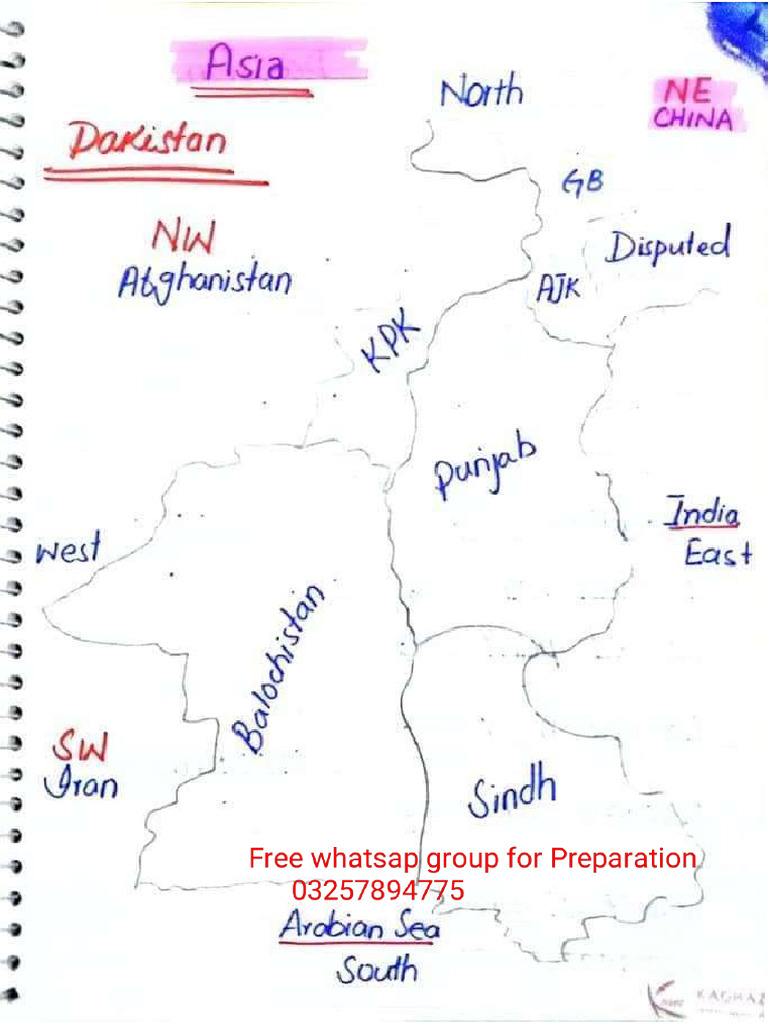 Asia
North
NE
CHINA
Pakistan
GB
NW
Afghanistan
Disputed
AJK
KPK
Punjab
India
East
West
Balochistan
SW
Iran
Sindh
Free whatsap group for Preparation
03257894775
Arabian Sea
South